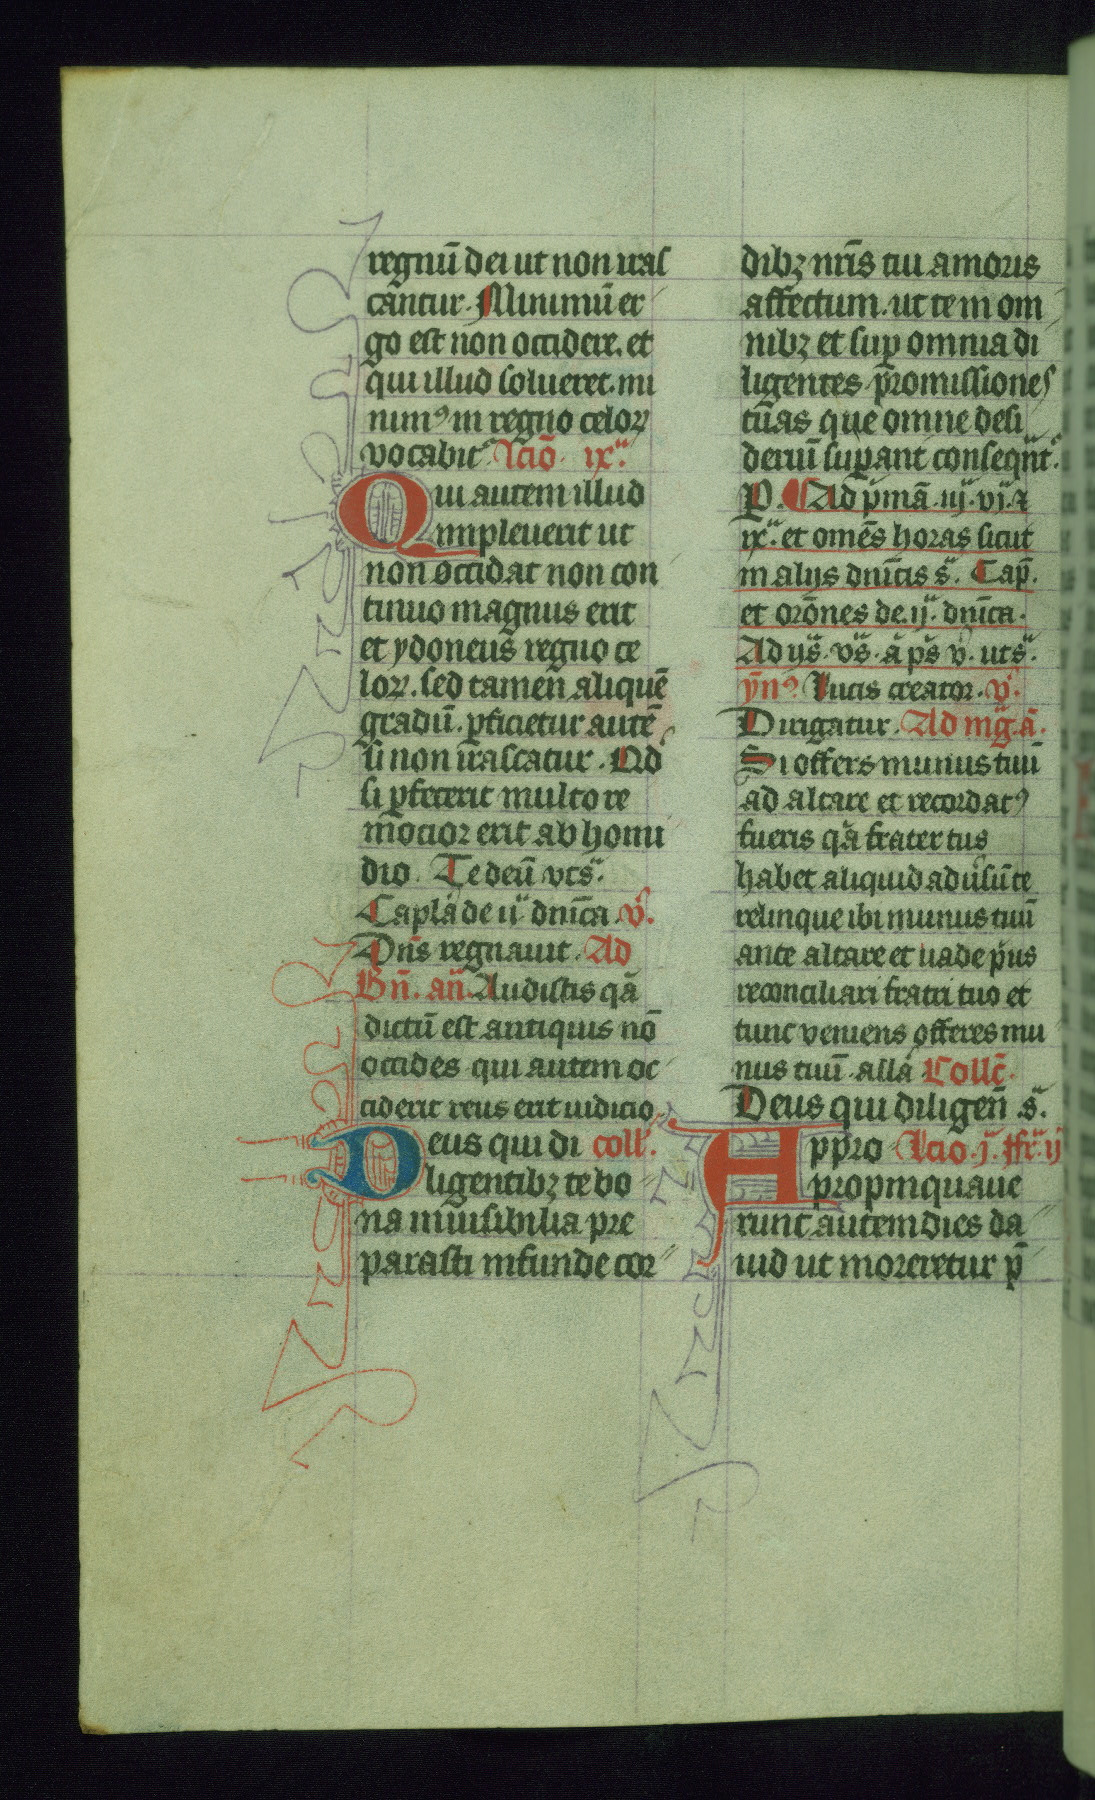 regnū dei ut non iras
cantur. Minimū er
go est non occidere. et
qui illud solueret. mi
nimꝰ in regno celoꝝ
vocabit᷑. Lc̄io ix.ª
Qui autem illud
impleuerit ut
non occidat non con
tinuo magnus erit
et ydoneus regno ce
loꝝ. sed tamen aliquē
gradū. ꝑficietur autē
si non irascatur. Qd̓
si ꝑfecerit multo re
mocior erit ab homi
dio. Te deū vt sª.
Capl̄a de iiª dn̄ica. v̓.
Dn̄s regnauit. Ad
Bn̄. an̄. Audistis qā
dictū est antiquis nō
occides qui autem oc
ciderit reus erit iudicio
Deus qui di coll̓.
ligentibꝫ te bo
na inuisibilia pre
parasti infunde cor
dibꝫ nr̄is tui amoris
affectum. ut te in om
nibꝫ et suꝑ omnia di
ligentes promissiones
tuas que omne desi
deriū suꝑant conseqn̄t᷑.
P. Ad pͥmā. iij. vj. ⁊
ixª. et omēs horas sicut
in alijs dn̄icis sª. Cap̄.
et orōnes de. ijª. dn̄ica.
Ad vs̓. ā ps̓ v̓. ut sª.
ẏnꝰ. Lucis creator. v̓.
Dirigatur. Ad mg̓. ā.
Si offers munus tuū
ad altare et recordatꝰ
fueris qā frater tus
habet aliquid adūsū te
relinque ibi munus tuū
ante altare et uade pͥus
reconciliari fratri tuo et
tunc veniens offeres mu
nus tuū alla̓ Collc̄.
Deus qui diligen̄ .sª.
Appro Lcio .j. ffr̄. ij
propinquaue
runt autem dies da
uid ut moreretur p̄